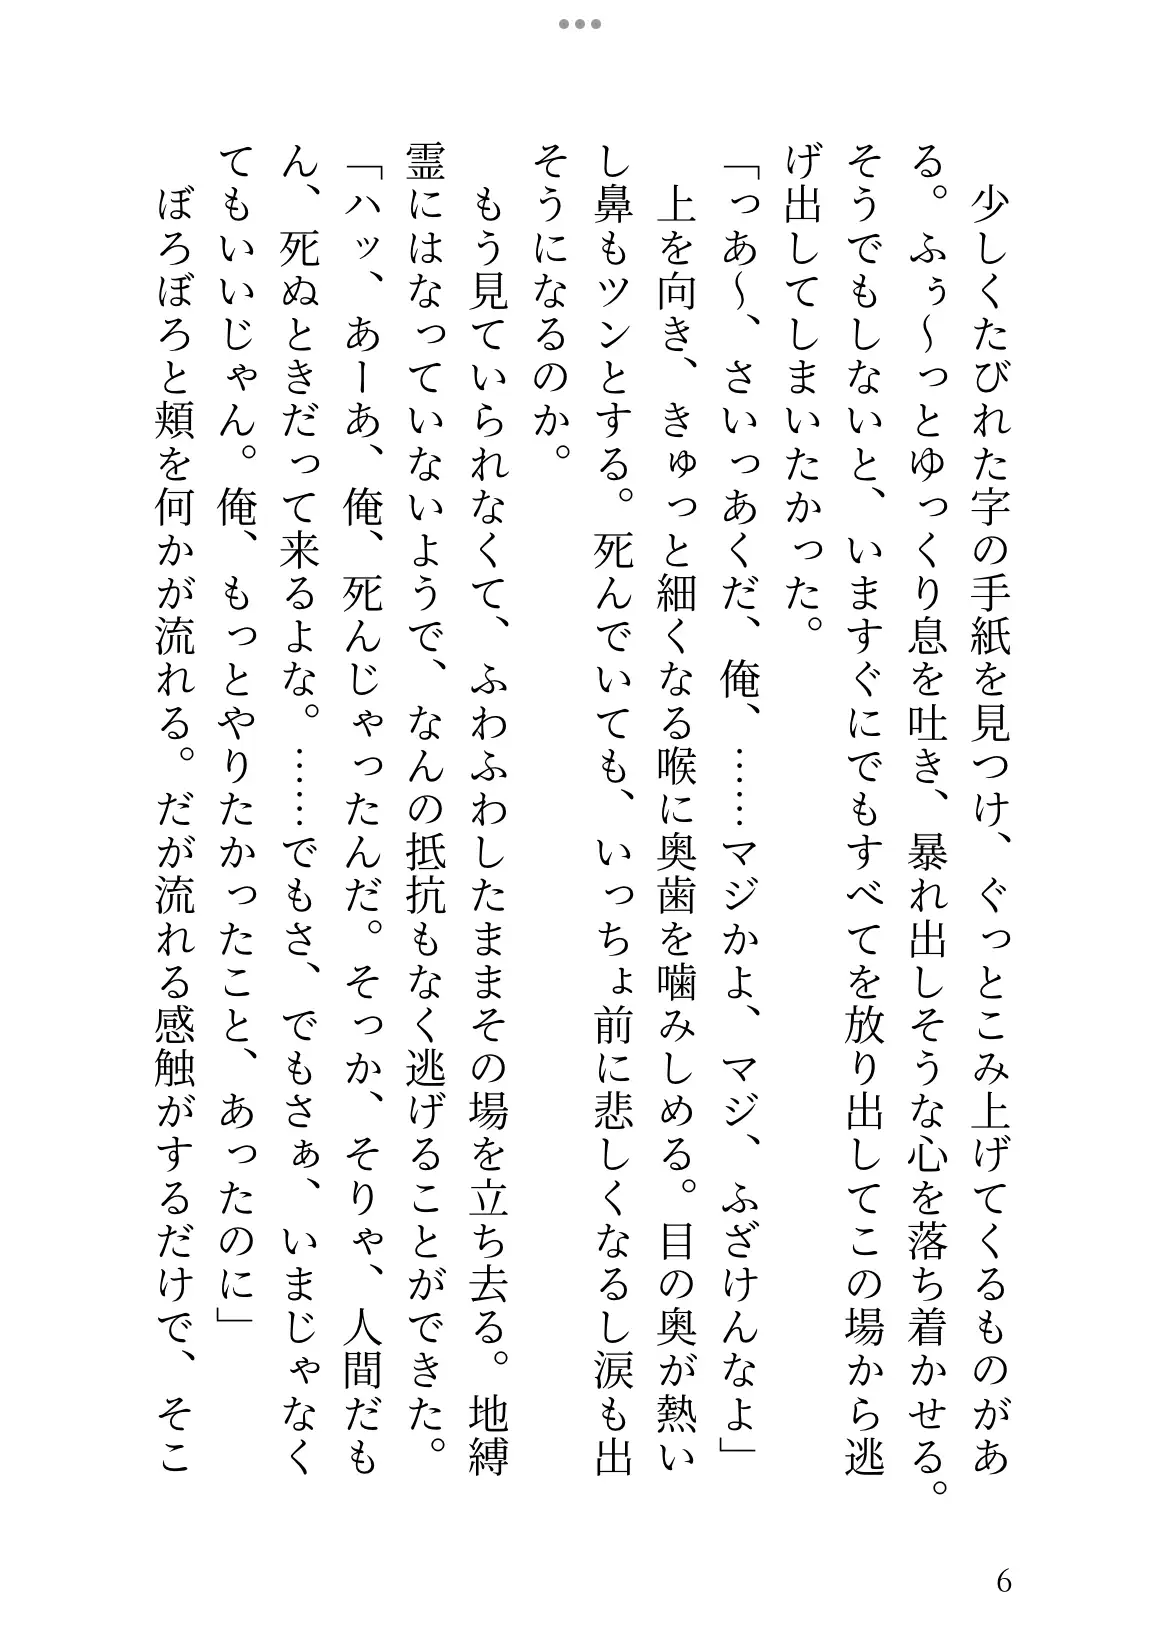 少しくたびれた字の手紙を見つけ、ぐっとこみ上げてくるものがあ
る。ふぅ～っとゆっくり息を吐き、暴れ出しそうな心を落ち着かせる。
そうでもしないと、いますぐにでもすべてを放り出してこの場から逃
げ出してしまいたかった。
「っあ～、さいっあくだ、俺、……マジかよ、マジ、ふざけんなよ」
上を向き、きゅっと細くなる喉に奥歯を噛みしめる。目の奥が熱い
し鼻もツンとする。死んでいても、いっちょ前に悲しくなるし涙も出
そうになるのか。
もう見ていられなくて、ふわふわしたままその場を立ち去る。地縛
霊にはなっていないようで、なんの抵抗もなく逃げることができた。
「ハッ、あーあ、俺、死んじゃったんだ。そっか、そりゃ、人間だも
ん、死ぬときだって来るよな。……でもさ、でもさぁ、いまじゃなく
てもいいじゃん。俺、もっとやりたかったこと、あったのに」
ぼろぼろと頬を何かが流れる。だが流れる感触がするだけで、そこ
6